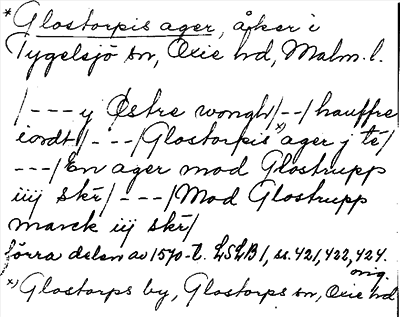 *Glostorpis ager, åker i
Tygelsjö sn, Oxie hd, Malm. l.
/---y Østre wongh/--/hauffre
iordt/---/Glostorpis x) ager j té/
---/En ager mod Glostrupp
iiij skr/---/Mod Glostrupp
marck iij skr/
förra delen av 1570-t. LSLB 1, ss. 421, 422, 424.
orig.
x) Glostorps by, Glostorps sn, Oxie hd